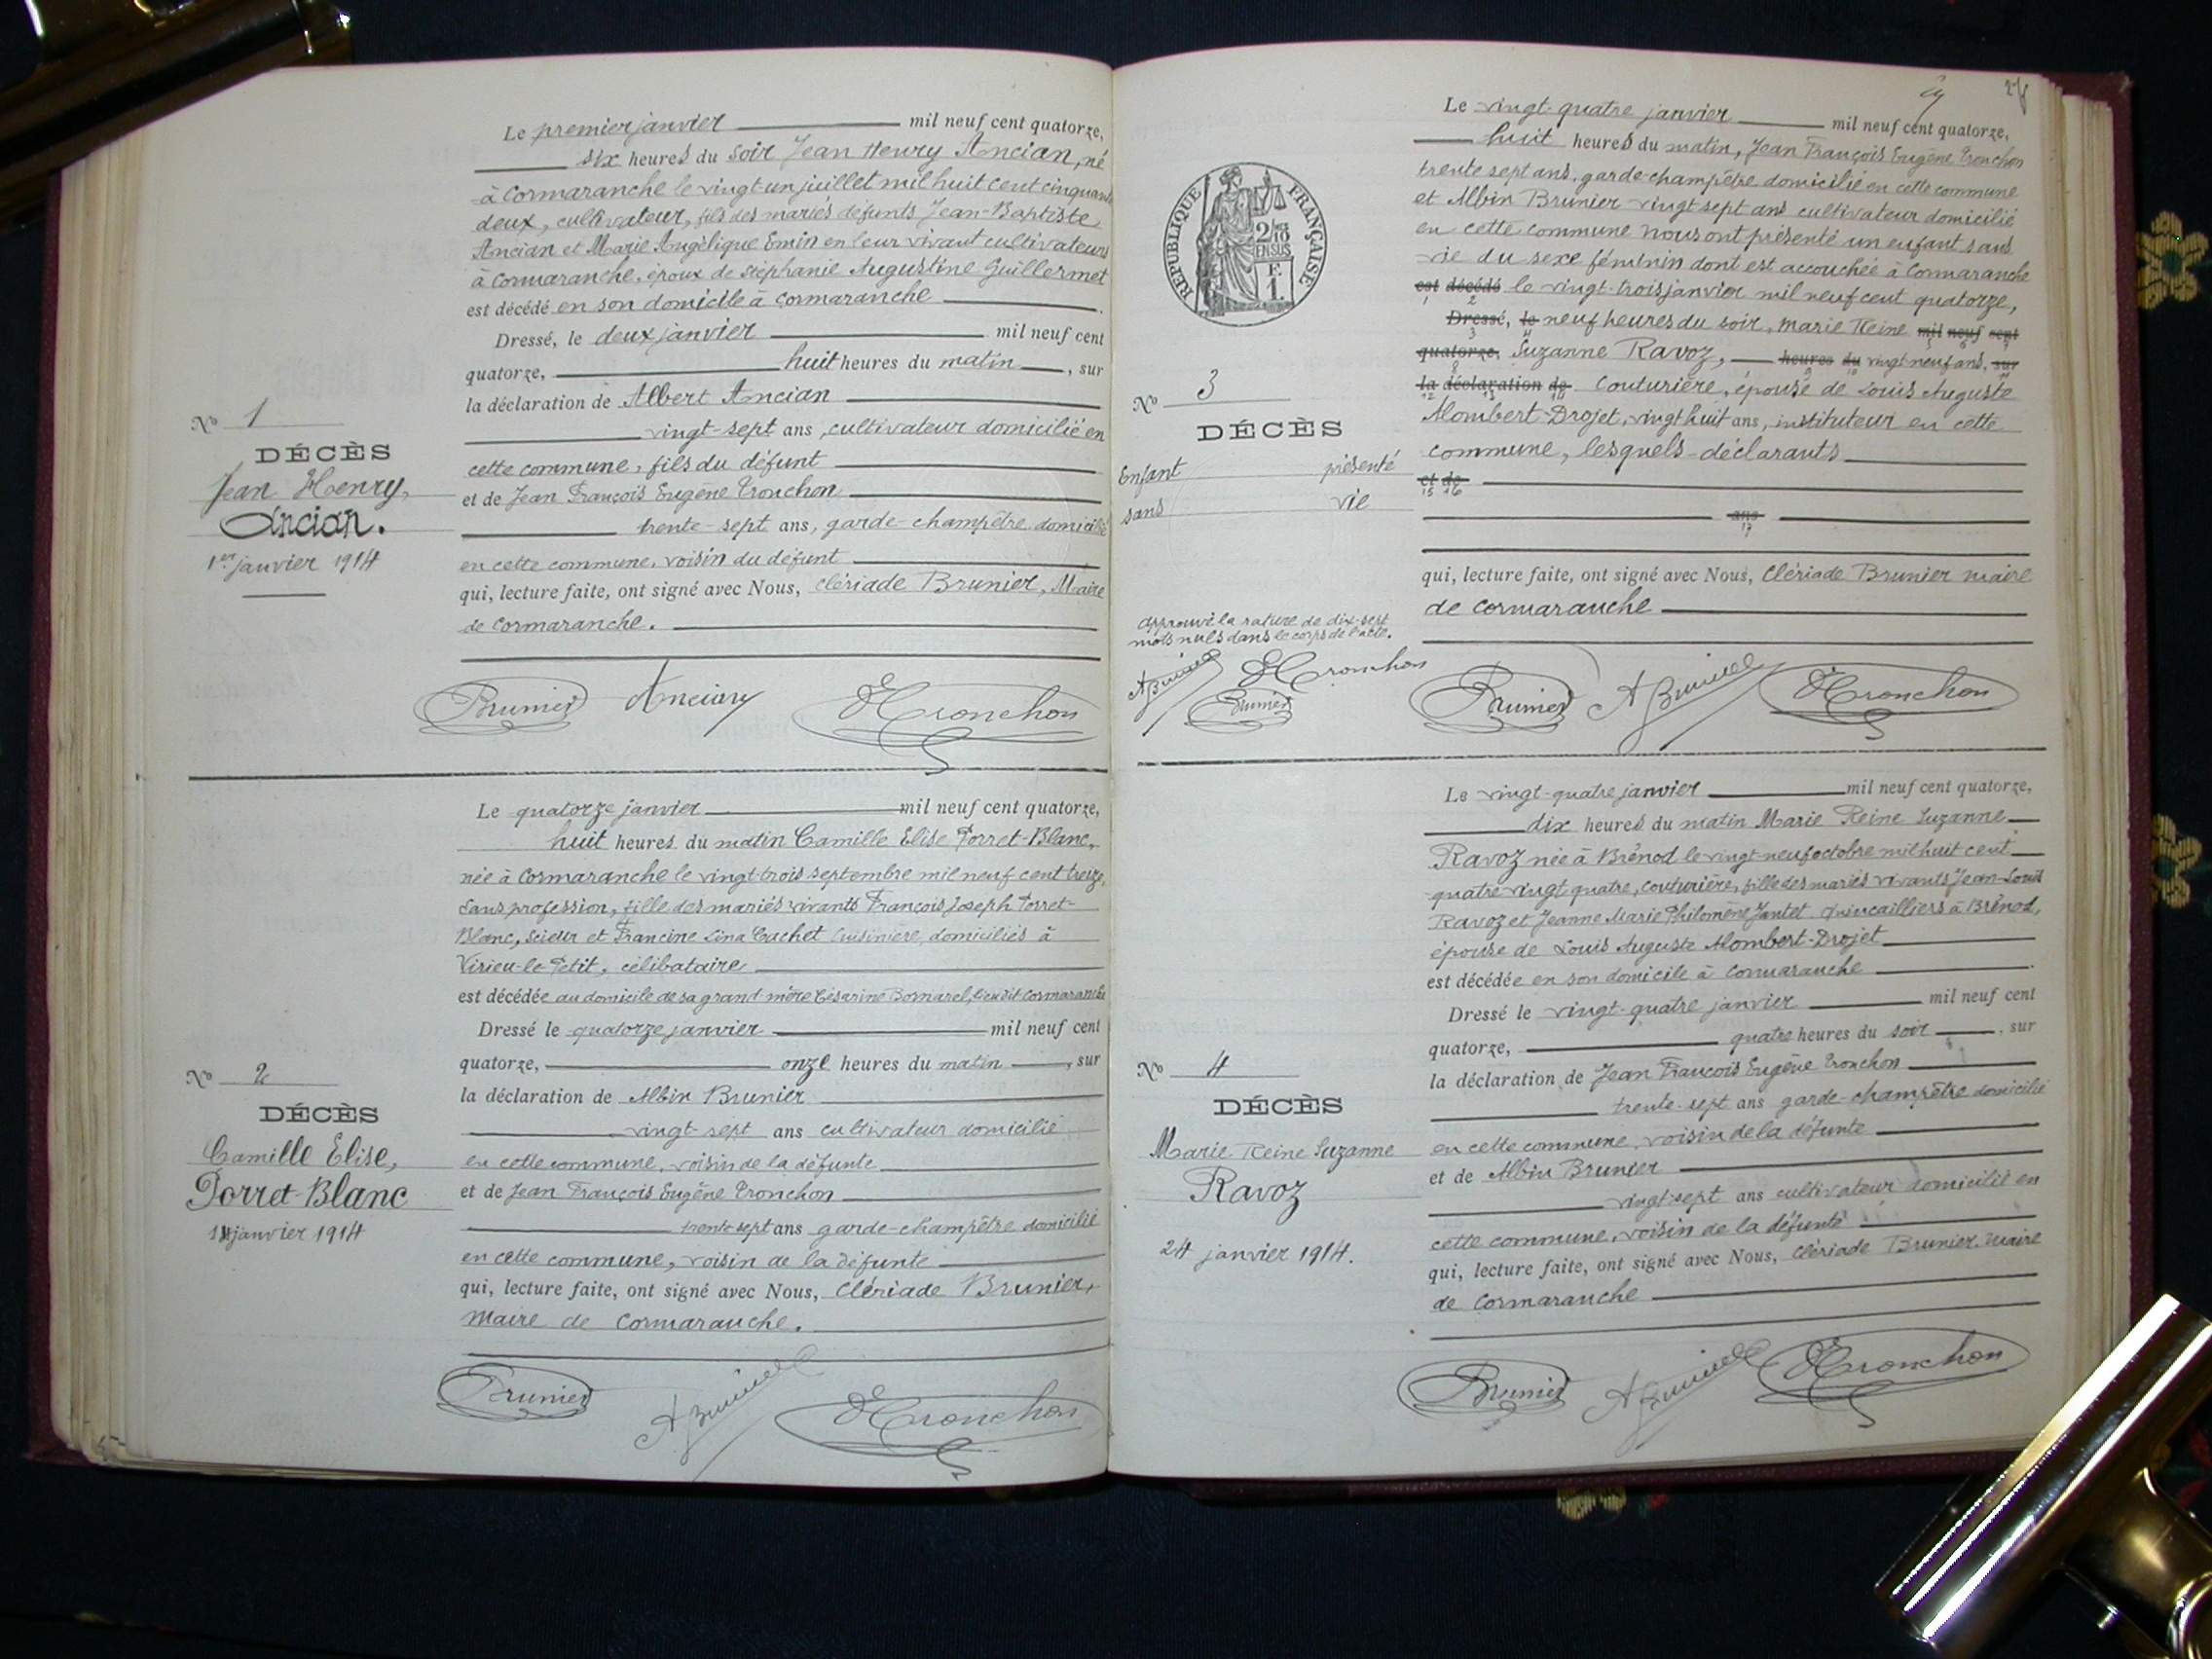 Le premier janvier mil neuf cent quatorze,
six heures du soir Jean Henry Ancian, né
à Cormaranche le vingt un juillet mil huit cent cinquante
deux, cultivateur, fils des mariés défunts Jean-Baptiste
Ancian et Marie Angèlique Emin en leur vivant cultivateurs
à Cormaranche, époux de Stéphanie Augustine Guillermet
est décédé en son domicile à Cormaranche
Dressé, le deux janvier mil neuf cent
quatorze, huit heures du matin, sur
la déclaration de Albert Ancian
vingt-sept ans, cultivateur domicilié en
cette commune, fils du défunt
et de Jean François Eugène Tronchon
trente-sept ans, garde-champêtre domicilié
en cette commune, voisin du défunt
qui, lecture faite, ont signé avec Nous, Clériade Brunier, Maire
de Cormaranche.
N° 1
DÉCÈS
Jean Henry,
Ancian.
1er janvier 1914
Brunier Ancian Tronchon
Le quatorze janvier mil neuf cent quatorze,
huit heures du matin Camille Elise Porret-Blanc,
née à Cormaranche le vingt-trois septembre mil neuf cent treize,
sans profession, fille des mariés vivants François Joseph Porret-
Blanc, scieur et Francine Lina Cachet cuisinière, domiciliés à
Virieu-le-Petit, célibataire
est décédée au domicile de sa grand mère Césarine Bornarel, lieu dit Cormaranche
Dressé le quatorze janvier mil neuf cent
quatorze, onze heures du matin, sur
la déclaration de Albin Brunier
vingt-sept ans cultivateur domicilié
en cette commune, voisin de la défunte
et de Jean François Eugène Tronchon
trente-sept ans garde-champêtre domicilié
en cette commune, voisin de la défunte
qui, lecture faite, ont signé avec Nous, Clériade Brunier,
Maire de Cormaranche.
N° 2
DÉCÈS
Camille Elise,
Porret-Blanc
14 janvier 1914
Brunier A Brunier Tronchon
Le vingt-quatre janvier mil neuf cent quatorze,
huit heures du matin, Jean François Eugène Tronchon
trente sept ans, garde-champêtre domicilié en cette commune
et Albin Brunier vingt sept ans cultivateur domicilié
en cette commune nous ont présenté un enfant sans
vie du sexe féminin dont est accouchée à Cormaranche
est décédé le vingt-trois janvier mil neuf cent quatorze,
1 2
Dressé, le neuf heures du soir, Marie Reine mil neuf cent
3 4 5 6 7
quatorze, Suzanne Ravoz, heures du vingt neuf ans, sur
8 9 10 11
la déclaration de couturière, épouse de Louis Auguste
12 13 14
Alombert-Drojet, vingt huit ans, instituteur en cette
commune, lesquels déclarants
et de
15 16
ans
17
qui, lecture faite, ont signé avec Nous, Clériade Brunier maire
de Cormaranche
REPUBLIQUE FRANÇAISE
2/10
EN SUS
F.
1.
N° 3
DÉCÈS
Enfant présenté
sans vie
approuvé la rature de dix-sept
mots nuls dans le corps de l'acte.
A Brunier Tronchon
Brunier
Brunier A Brunier Tronchon
Le vingt-quatre janvier mil neuf cent quatorze,
dix heures du matin Marie Reine Suzanne
Ravoz née à Brénod le vingt-neuf octobre mil huit cent
quatre-vingt quatre, couturière, fille des mariés vivants Jean-Louis
Ravoz et Jeanne Marie Philomène Jantet quincailliers à Brénod,
épouse de Louis Auguste Alombert-Drojet
est décédée en son domicile à Cormaranche
Dressé le vingt-quatre janvier mil neuf cent
quatorze, quatre heures du soir, sur
la déclaration de Jean François Eugène Tronchon
trente-sept ans garde-champêtre domicilié
en cette commune, voisin de la défunte
et de Albin Brunier
vingt-sept ans cultivateur domicilié en
cette commune, voisin de la défunte
qui, lecture faite, ont signé avec Nous, Clériade Brunier, maire
de Cormaranche
N° 4
DÉCÈS
Marie Reine Suzanne
Ravoz
24 janvier 1914.
Brunier A Brunier Tronchon